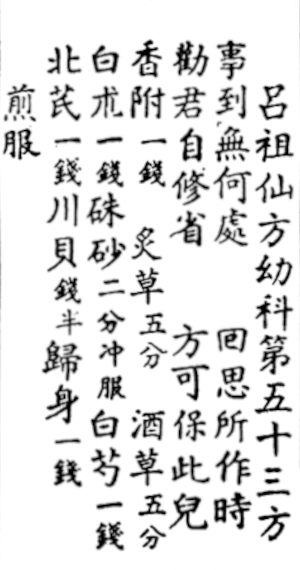 呂祖仙方幼科第五十三方
事到無何處 回思所作時
勸君自修省 方可保此兒
香附一錢 炙草五分 酒草五分
白朮一錢 硃砂二分冲服 白芍一錢
北芪一錢 川貝錢半 歸身一錢
煎服